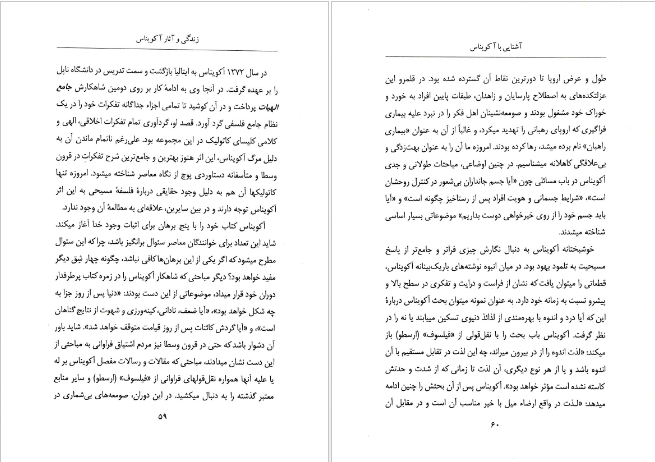 زندگی و آثار آکویناس
در سال ۱۲۷۲ آکویناس به ایتالیا بازگشت و سمت تدریس در دانشگاه ناپل
را بر عهده گرفت. در آنجا وی به ادامه کار بر روی دومین شاهکارش جامع
الهیات پرداخت و در آن کوشید تا تمامی اجزاء جداگانه تفکرات خود را در یک
نظام جامع فلسفی گرد آورد. قصد او، گردآوری تمام تفکرات اخلاقی، الهی و
کلامی کلیسای کاتولیک در این مجموعه بود. علی‌رغم ناتمام ماندن آن به
دلیل مرگ آکویناس، این اثر هنوز بهترین و جامع‌ترین شرح تفکرات در قرون
وسطا و متأسفانه دستاوردی پوچ از نگاه معاصر شناخته میشود. امروزه تنها
کاتولیکها آن هم به دلیل وجود حقایقی دربارهٔ فلسفهٔ مسیحی به این اثر
آکویناس توجه دارند و در بین سایرین، علاقه‌ای به مطالعهٔ آن وجود ندارد.
آکویناس کتاب خود را با پنج برهان برای اثبات وجود خدا آغاز میکند.
شاید این تعداد برای خوانندگان معاصر سئوال برانگیز باشد، چرا که این سئوال
مطرح میشود که اگر یکی از این برهان‌ها کافی نباشد، چگونه چهار شِق دیگر
مفید خواهد بود؟ دیگر مباحثی که شاهکار آکویناس را در زمره کتاب پرطرفدار
دوران خود قرار میداد، موضوعاتی از این دست بودند: «دنیا پس از روز جزا به
چه شکل خواهد بود»، «آیا ضعف، نادانی، کینه‌ورزی و شهوت از نتایج گناهان
است»، و «آیا گردش کائنات پس از روز قیامت متوقف خواهد شد». شاید باور
آن دشوار باشد که حتی در قرون وسطا نیز مردم اشتیاق فراوانی به مباحثی از
این دست نشان میدادند، مباحثی که مقالات و رسالات مفصل آکویناس بر له
یا علیه آنها همواره نقل‌قولهای فراوانی از «فیلسوف» (ارسطو) و سایر منابع
معتبر گذشته را به دنبال میکشید. در این دوران، صومعه‌های بی‌شماری در
۵۹
آشنایی با آکویناس
طول و عرض اروپا تا دورترین نقاط آن گسترده شده بود. در قلمرو این
عزلتکده‌های به اصطلاح پارسایان و زاهدان، طبقات پایین افراد به خورد و
خوراک خود مشغول بودند و صومعه‌نشینان اهل فکر را در نبرد علیه بیماری
فراگیری که اروپای رهبانی را تهدید میکرد، و غالباً از آن به عنوان «بیماری
راهبان» نام برده میشد، رها کرده بودند. امروزه ما آن را به عنوان بهت‌زدگی و
بی‌علاقگی کاهلانه میشناسیم. در چنین اوضاعی، مباحثات طولانی و جدی
آکویناس در باب مسائلی چون «آیا جسم جانداران بی‌شعور در کنترل روحشان
است»، «شرایط جسمانی و هویت افراد پس از رستاخیز چگونه است» و «آیا
باید جسم خود را از روی خیرخواهی دوست بداریم» موضوعاتی بسیار اساسی
شناخته میشدند.
خوشبختانه آکویناس به دنبال نگارش چیزی فراتر و جامع‌تر از پاسخ
مسیحیت به تلمود یهود بود. در میان انبوه نوشته‌های باریک‌بینانه آکویناس،
قطعاتی را میتوان یافت که نشان از فراست و درایت و تفکری در سطح بالا و
پیشرو نسبت به زمانه خود دارد. به عنوان نمونه میتوان بحث آکویناس دربارهٔ
این که آیا درد و اندوه با بهره‌مندی از لذائذ دنیوی تسکین مییابند یا نه را در
نظر گرفت. آکویناس باب بحث را با نقل‌قولی از «فیلسوف» (ارسطو) باز
میکند: «لذت اندوه را از در بیرون میراند، چه این لذت در تقابل مستقیم با آن
اندوه باشد و یا از هر نوع دیگری، آن لذت تا زمانی که از شدت و حدتش
کاسته نشده است مؤثر خواهد بود». آکویناس پس از آن بحثش را چنین ادامه
میدهد: «لذت در واقع ارضاء میل با خیر مناسب آن است و در مقابل آن
۶۰